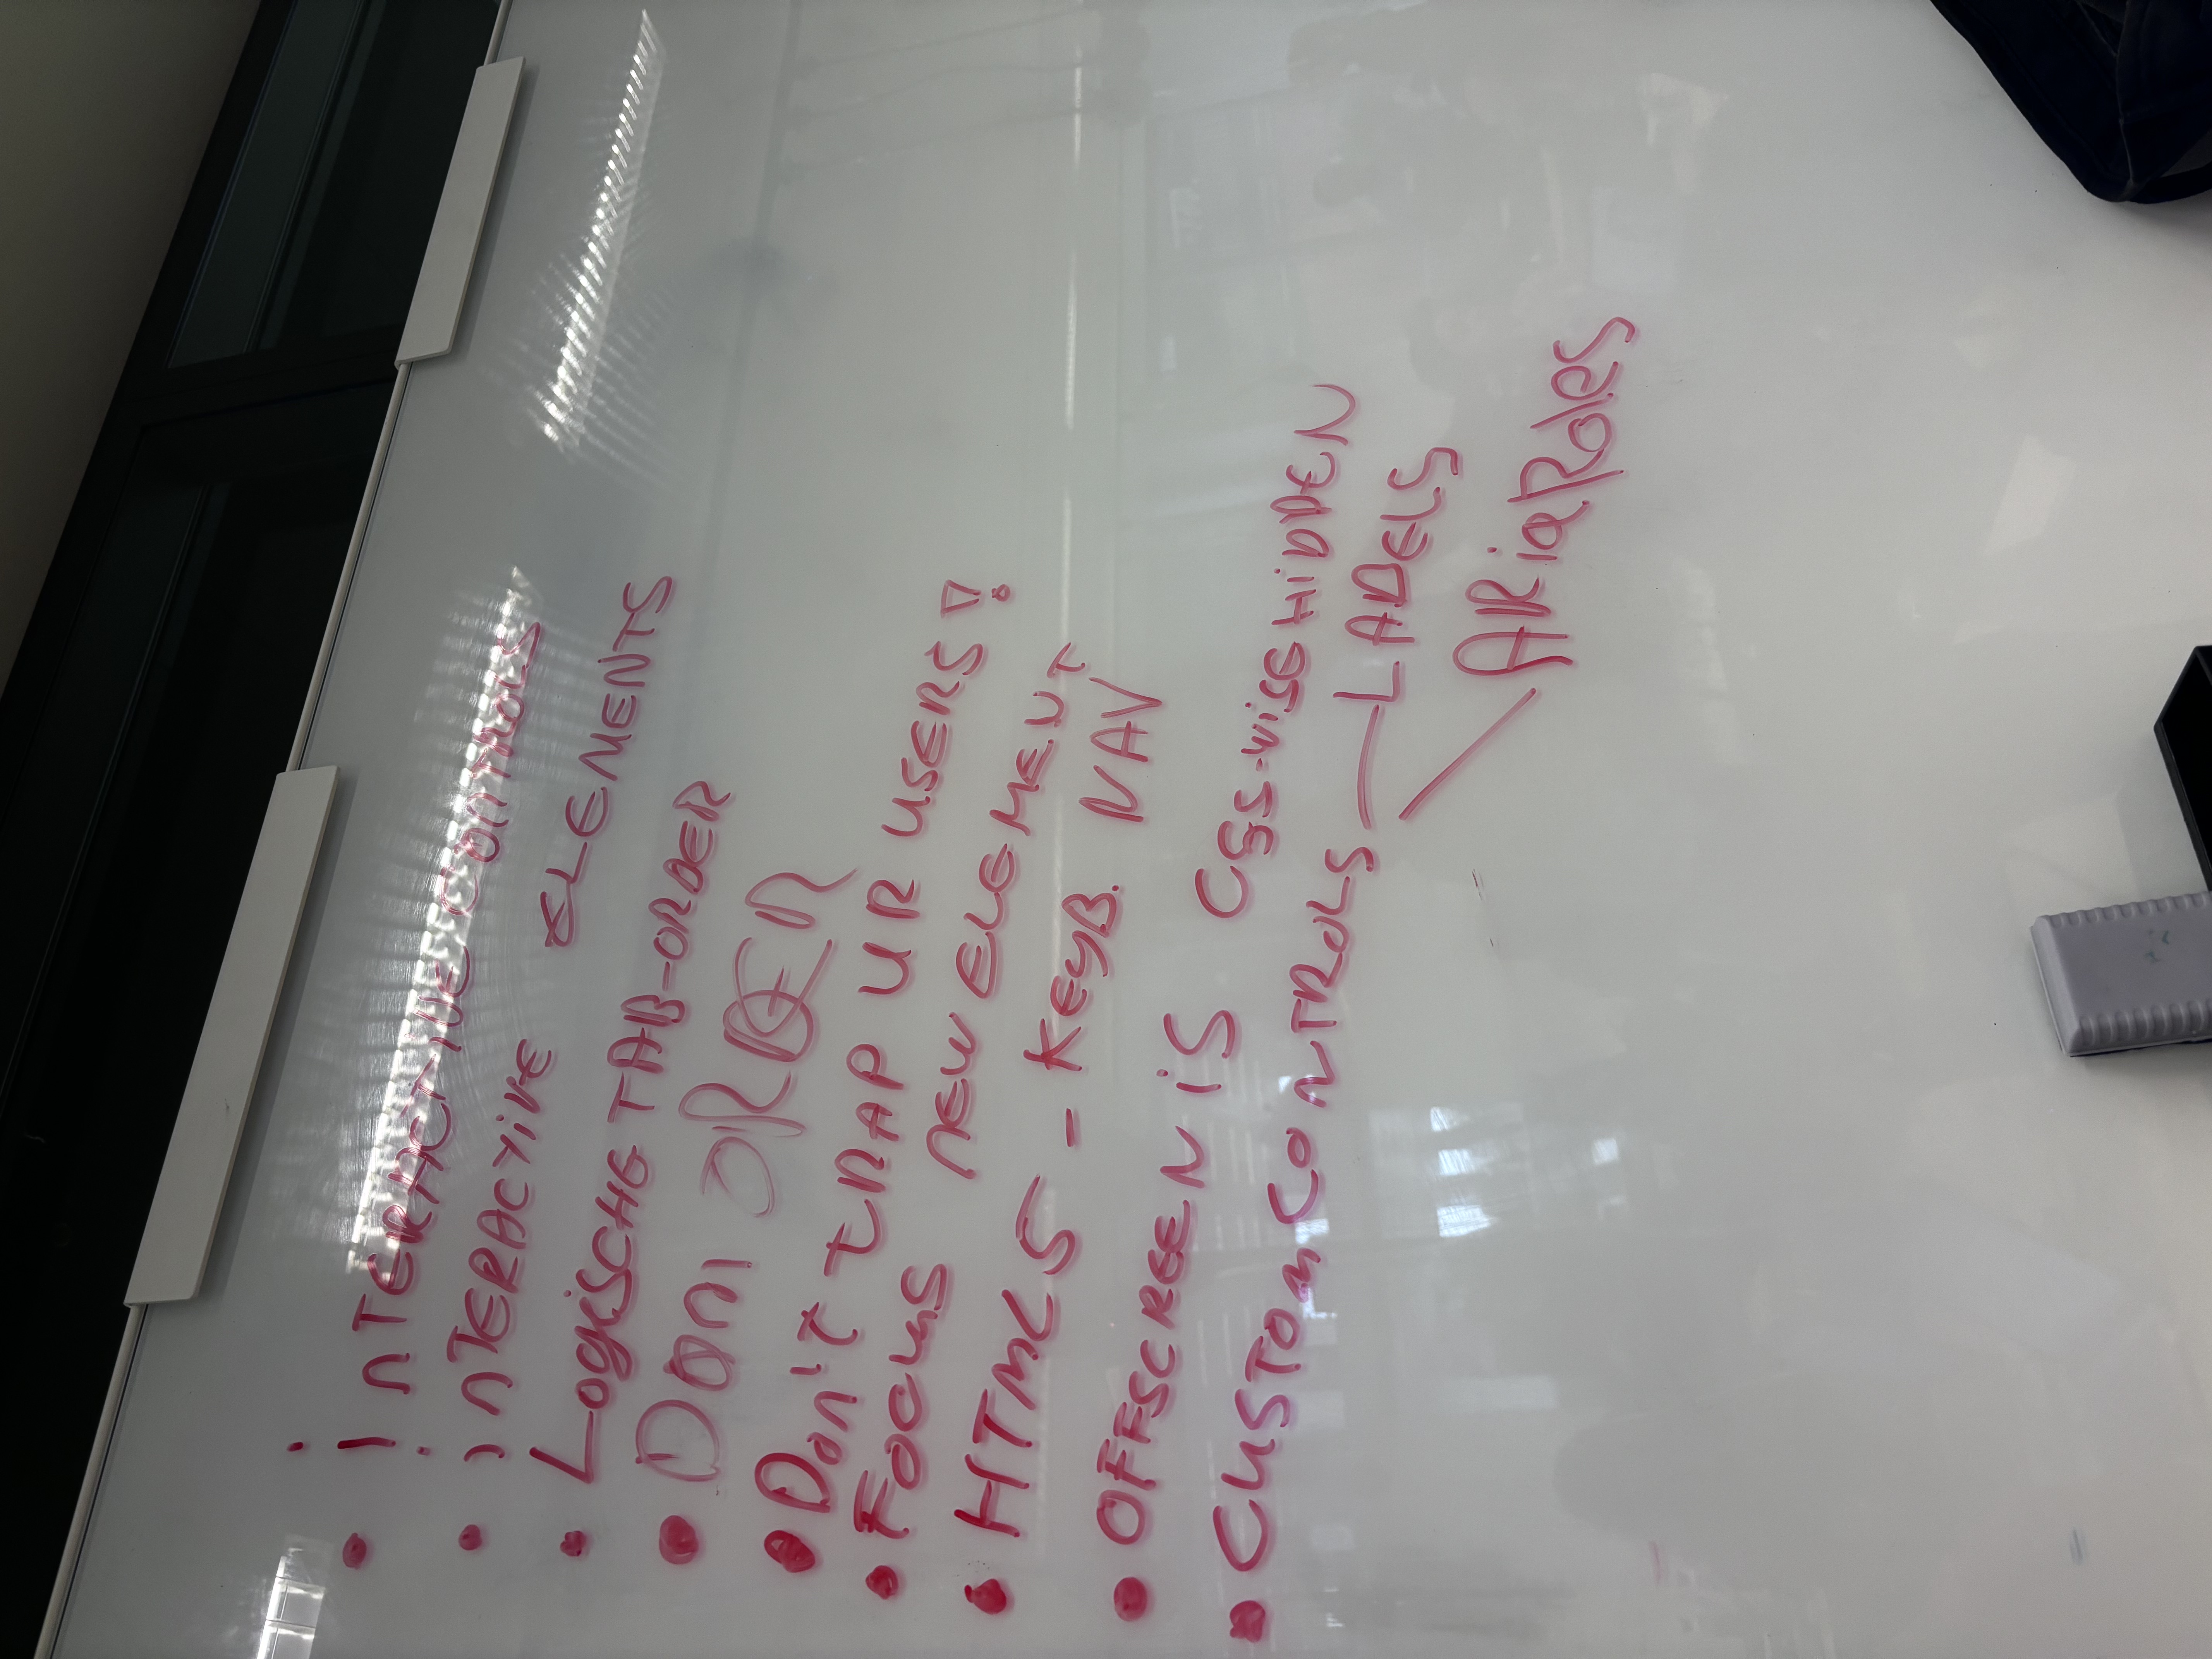 • iNTERACTIVE CONTROLS
• iNTERACTIVE ELEMENTS
• LogiSCHE TAB-ORDER
• DOM ORDER
• Don't TRAP UR USERS!
• Focus NEW ELEMENT
• HTML5 - KEYB. NAV
• OFFSCREEN iS CSS-WiSE HiDDEN
• CUSTOM CONTROLS — LABELS
ARia Roles